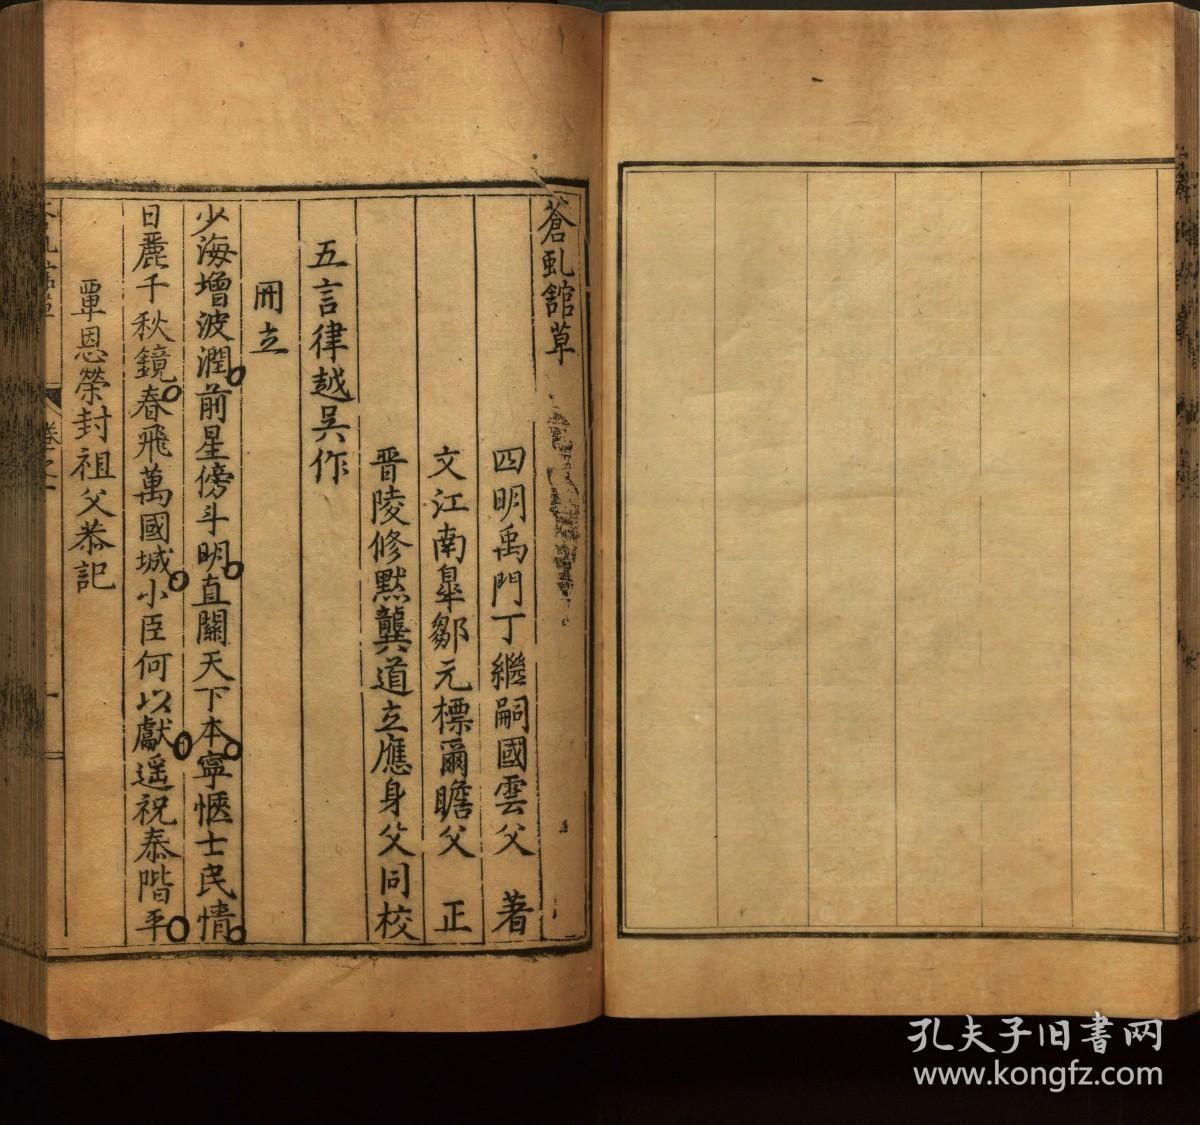 蒼虬舘草
四明禹門丁繼嗣國雲父 著
文江南臯鄒元標爾瞻父 正
晋陵修默龔道立應身父同校
五言律越吳作
冊立
少海增波潤前星傍斗明直關天下本寧愜士民情
日麗千秋鏡春飛萬國城小臣何以獻遥祝泰階平
覃恩榮封祖父恭記
卷之一
一
孔夫子旧书网
www.kongfz.com